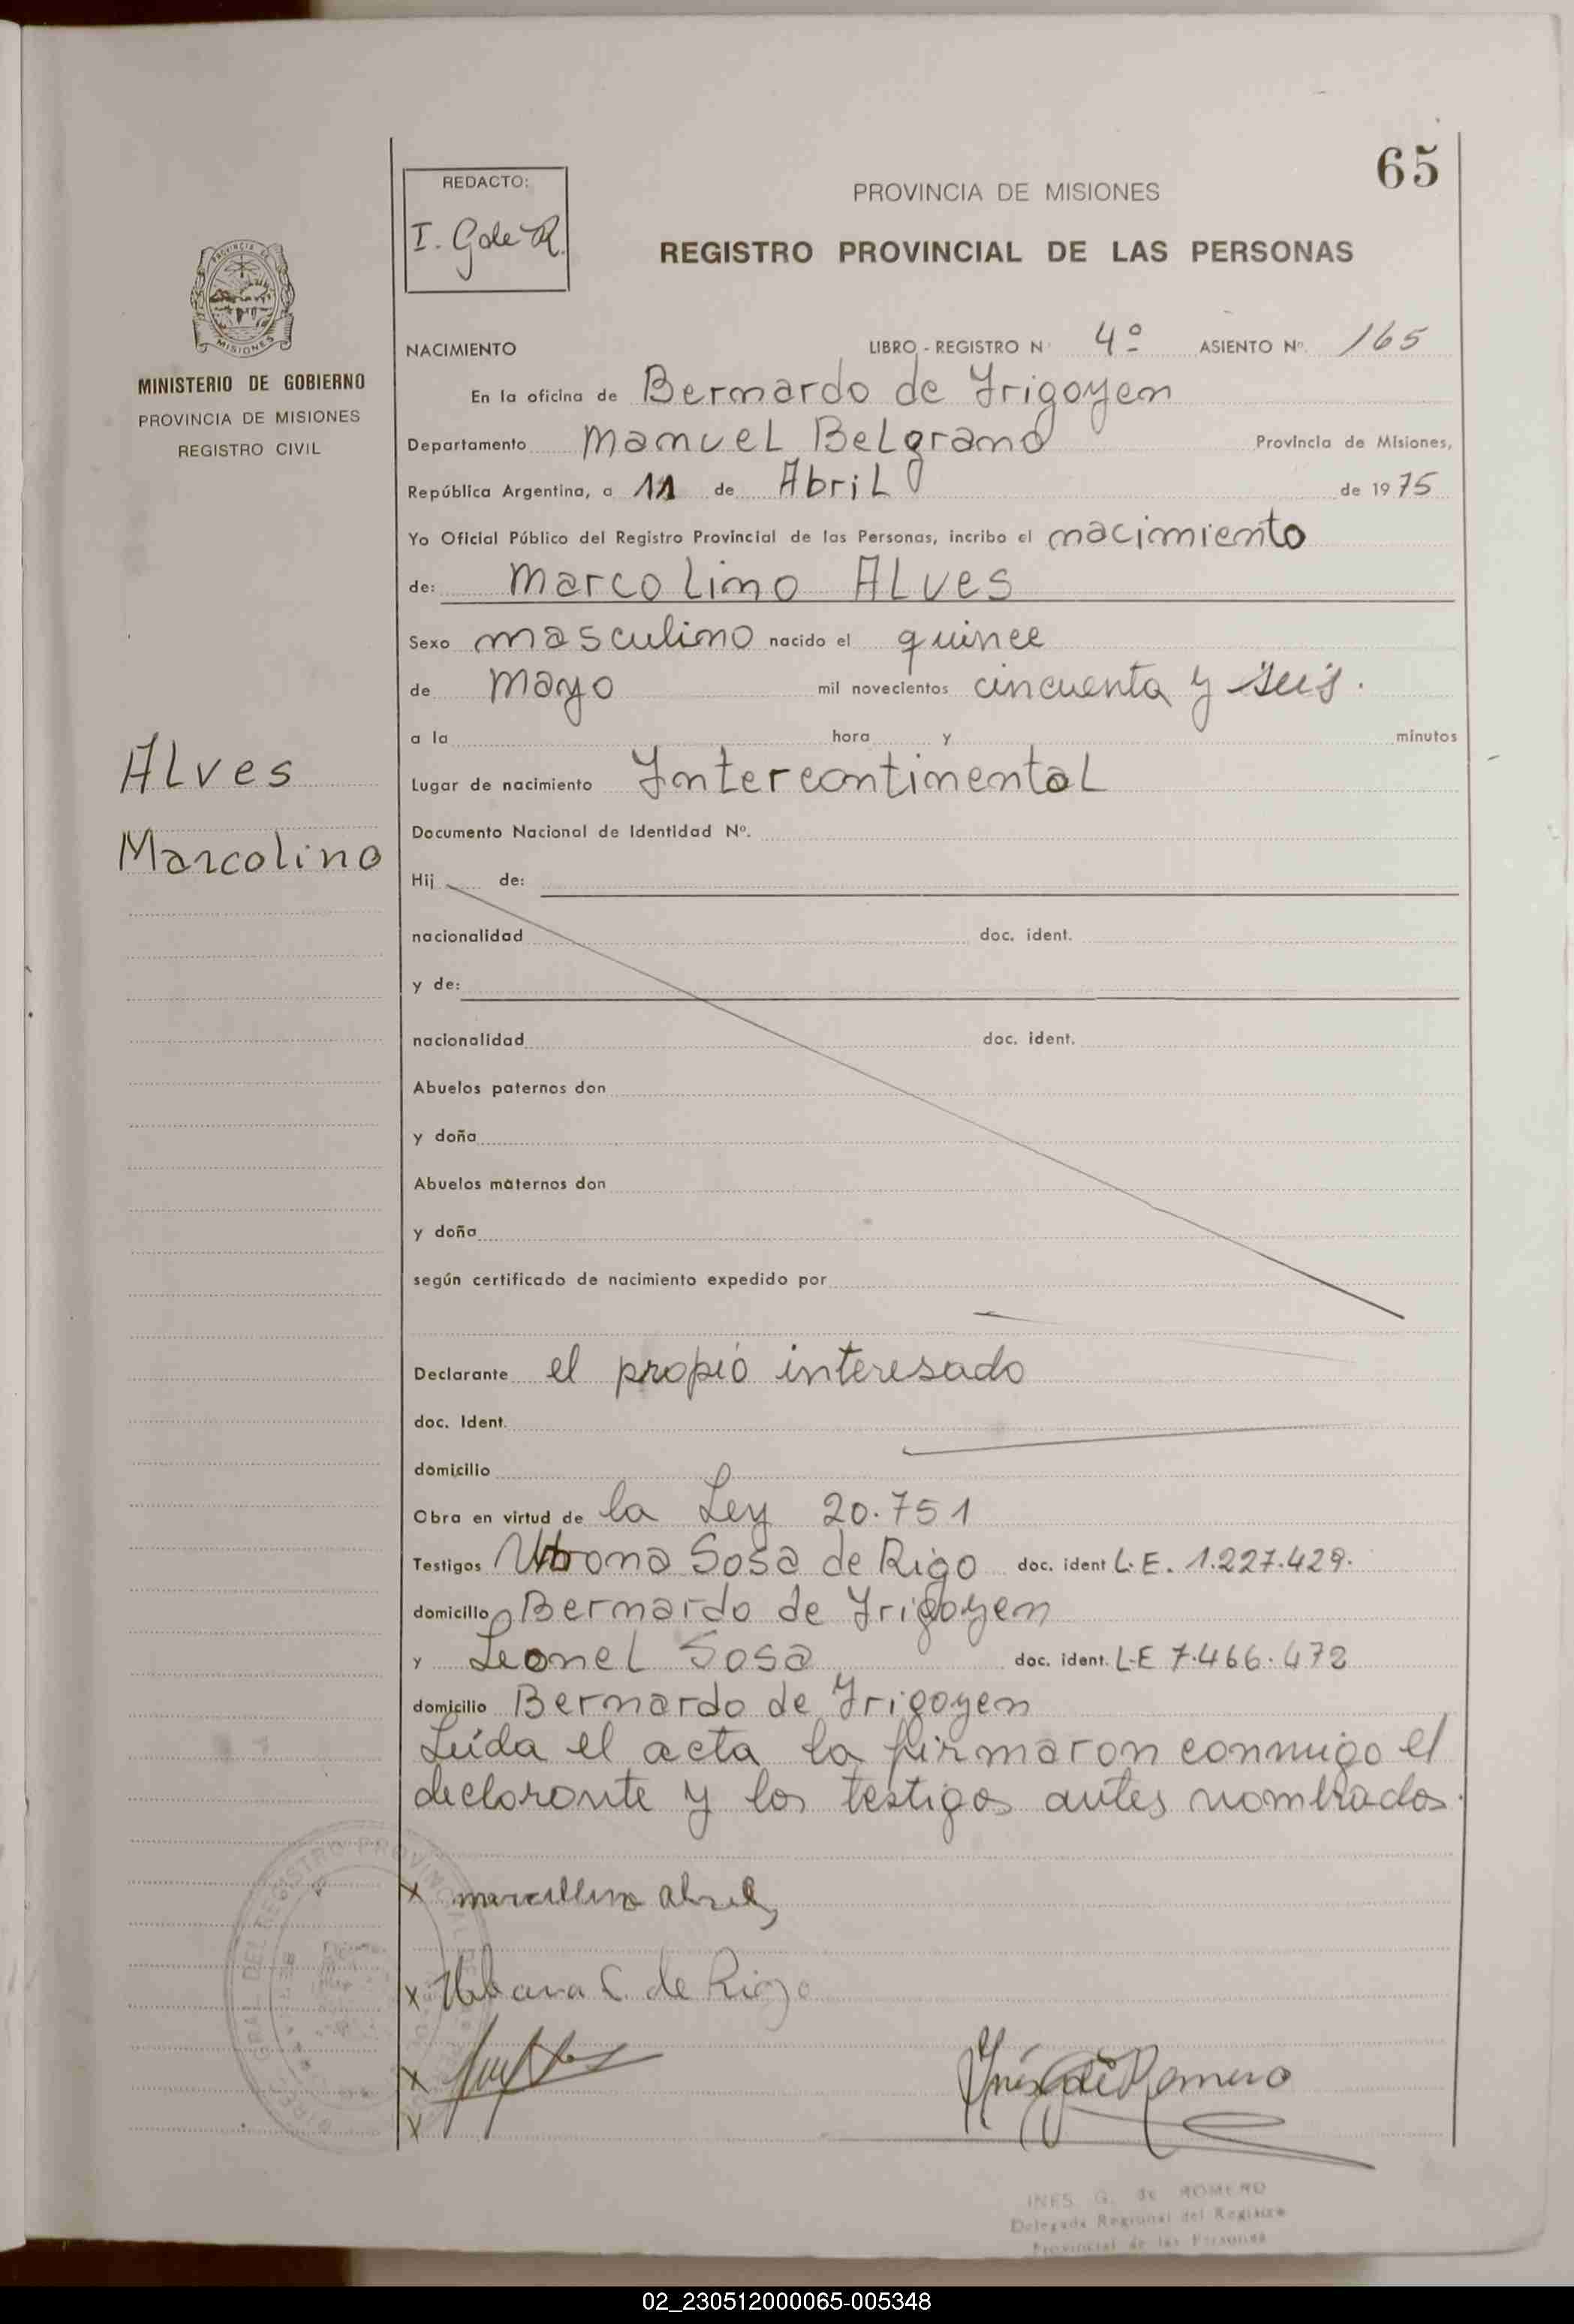 65
REDACTO:
I. G de R.
PROVINCIA DE MISIONES
REGISTRO PROVINCIAL DE LAS PERSONAS
MISIONES
MINISTERIO DE GOBIERNO
PROVINCIA DE MISIONES
REGISTRO CIVIL
NACIMIENTO LIBRO - REGISTRO N° 4º ASIENTO Nº. 165
En la oficina de Bernardo de Irigoyen
Departamento Manuel Belgrano Provincia de Misiones,
República Argentina, a 11 de Abril de 1975
Yo Oficial Público del Registro Provincial de las Personas, incribo el nacimiento
de: Marcolino Alves
Sexo masculino nacido el quince
de Mayo mil novecientos cincuenta y seis.
a la hora y minutos
Alves
Lugar de nacimiento Intercontinental
Documento Nacional de Identidad Nº.
Marcolino
Hij de:
nacionalidad doc. ident.
y de:
nacionalidad doc. ident.
Abuelos paternos don
y doña
Abuelos maternos don
y doña
según certificado de nacimiento expedido por
Declarante el propio interesado
doc. Ident.
domicilio
Obra en virtud de la Ley 20.751
Testigos Urbana Sosa de Rigo doc. ident L.E. 1.227.429.
domicilio Bernardo de Irigoyen
y Leonel Sosa doc. ident. L.E 7.466.472
domicilio Bernardo de Irigoyen
Leída el acta la firmaron conmigo el
declarante y los testigos antes nombrados.
x
x Urbana S. de Rigo
x
Inés G de Romero
x
INES G. de ROMERO
Delegada Regional del Registro
Provincial de las Personas
02_230512000065-005348